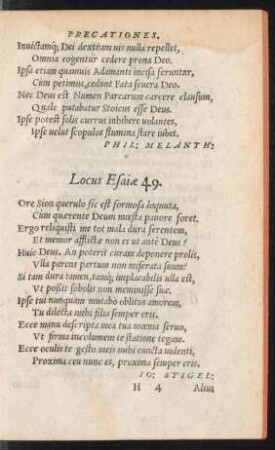 PRECATIONES.
Inuictamq́; Dei dextram uis nulla repellet,
Omnia cogentur cedere prona Deo.
Ipsa etiam quamuis Adamanti incisa feruntur,
Cum petimus, cedunt Fata seuera Deo.
Nec Deus est Numen Parcarum carcere clausum,
Quale putabatur Stoicus esse Deus.
Ipse potest solis currus inhibere uolantes,
Ipse uelut scopulos flumina stare iubet.
PHIL: MELANTH:
Locus Esaiæ 49.
Ore Sion querulo sic est formosa loquuta,
Cum querente Deum mœsta pauore foret.
Ergo reliquisti me tot mala dura ferentem,
Et memor afflictæ non es ut ante Deus?
Huic Deus. An poterit curam deponere prolis,
Vlla parens partum non miserata suum?
Si tam dura tamen, tamq́; implacabilis ulla est,
Vt possit sobolis non meminisse suæ.
Ipse tui nunquam mutabo oblitus amorem,
Tu dilecta mihi filia semper eris.
Ecce manu descripta mea tua mœnia seruo,
Vt firma incolumem te statione tegam.
Ecce oculis te gesto meis mihi cuncta uidenti,
Proxima ceu nunc es, proxima semper eris.
IO: STIGEL:
H 4 Aliud